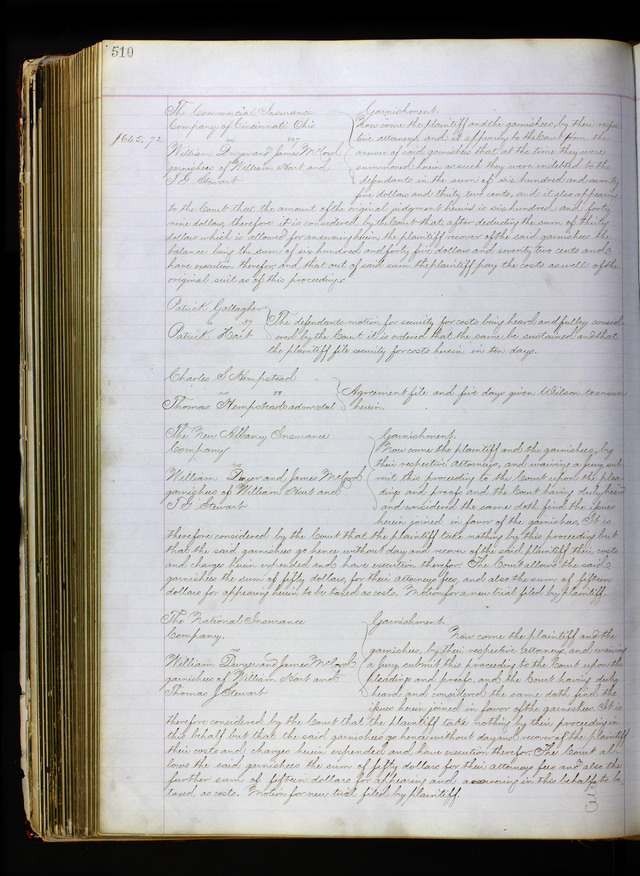 510
The Commercial Insurance
Company of Cincinnati Ohio
$645.72
vs
William Dwyer and James McCord
garnishees of William Hart and
T J Stewart
Garnishment.
Now come the plaintiff and the garnishees, by their respec
tive attorneys and it appearing to the Court from the
answer of said garnishees that at the time they were
summoned herein as such they were indebted to the
defendants in the sum of six hundred and seventy
five dollars and thirty two cents, and it also appearing
to the Court that the amount of the original judgment herein is six hundred and forty
nine dollars, therefore it is considered by the Court that after deducting the sum of thirty
dollars which is allowed for answering herein, the plaintiff recover of the said garnishees the
balance being the sum of six hundred and forty five dollars and seventy two cents and
have execution therefor, and that out of said sum the plaintiff pay the costs as well of the
original suit as of this proceeding.
Patrick Gallagher
vs
Patrick Hart
The defendants motion for security for costs being heard and fully consid
ered by the Court it is ordered that the same be sustained and that
the plaintiff file security for costs herein in ten days.
Charles S Hempstead
vs
Thomas Hempstead admr et al
Agreement file and five days given Wilson to answer
herein.
The New Albany Insurance
Company
vs
William Dwyer and James McCord
garnishees of William Hart and
T J Stewart
Garnishment.
Now come the plaintiff and the garnishees, by
their respective attorneys, and waiving a jury, sub
mit this proceeding to the Court upon the plea
dings and proofs and the Court having duly heard
and considered the same doth find the issues
herein joined in favor of the garnishees. It is
therefore considered by the Court that the plaintiff take nothing by this proceeding but
that the said garnishees go hence without day and recover of the said plaintiff their costs
and charges herein expended and have execution therefor. The Court allows the said
garnishees the sum of fifty dollars, for their attorneys fees, and also the sum of fifteen
dollars for appearing herein to be taxed as costs. Motion for new trial filed by plaintiff.
The National Insurance
Company.
vs
William Dwyer and James McCord
garnishees of William Hart and
Thomas J Stewart
Garnishment.
Now come the plaintiff and the
garnishees, by their respective attorneys and waiving
a jury, submit this proceeding to the Court upon the
pleadings and proofs, and the Court having duly
heard and considered the same doth find the
issues herein joined in favor of the garnishees. It is
therefore considered by the Court that the plaintiff take nothing by their proceeding in
this behalf but that the said garnishees go hence without day and recover of the plaintiff
their costs and charges herein expended and have execution therefor. The Court al
lows the said garnishees the sum of fifty dollars for their attorneys fees and also the
further sum of fifteen dollars for appearing and answering in this behalf to be
taxed as costs. Motion for new trial filed by plaintiff.